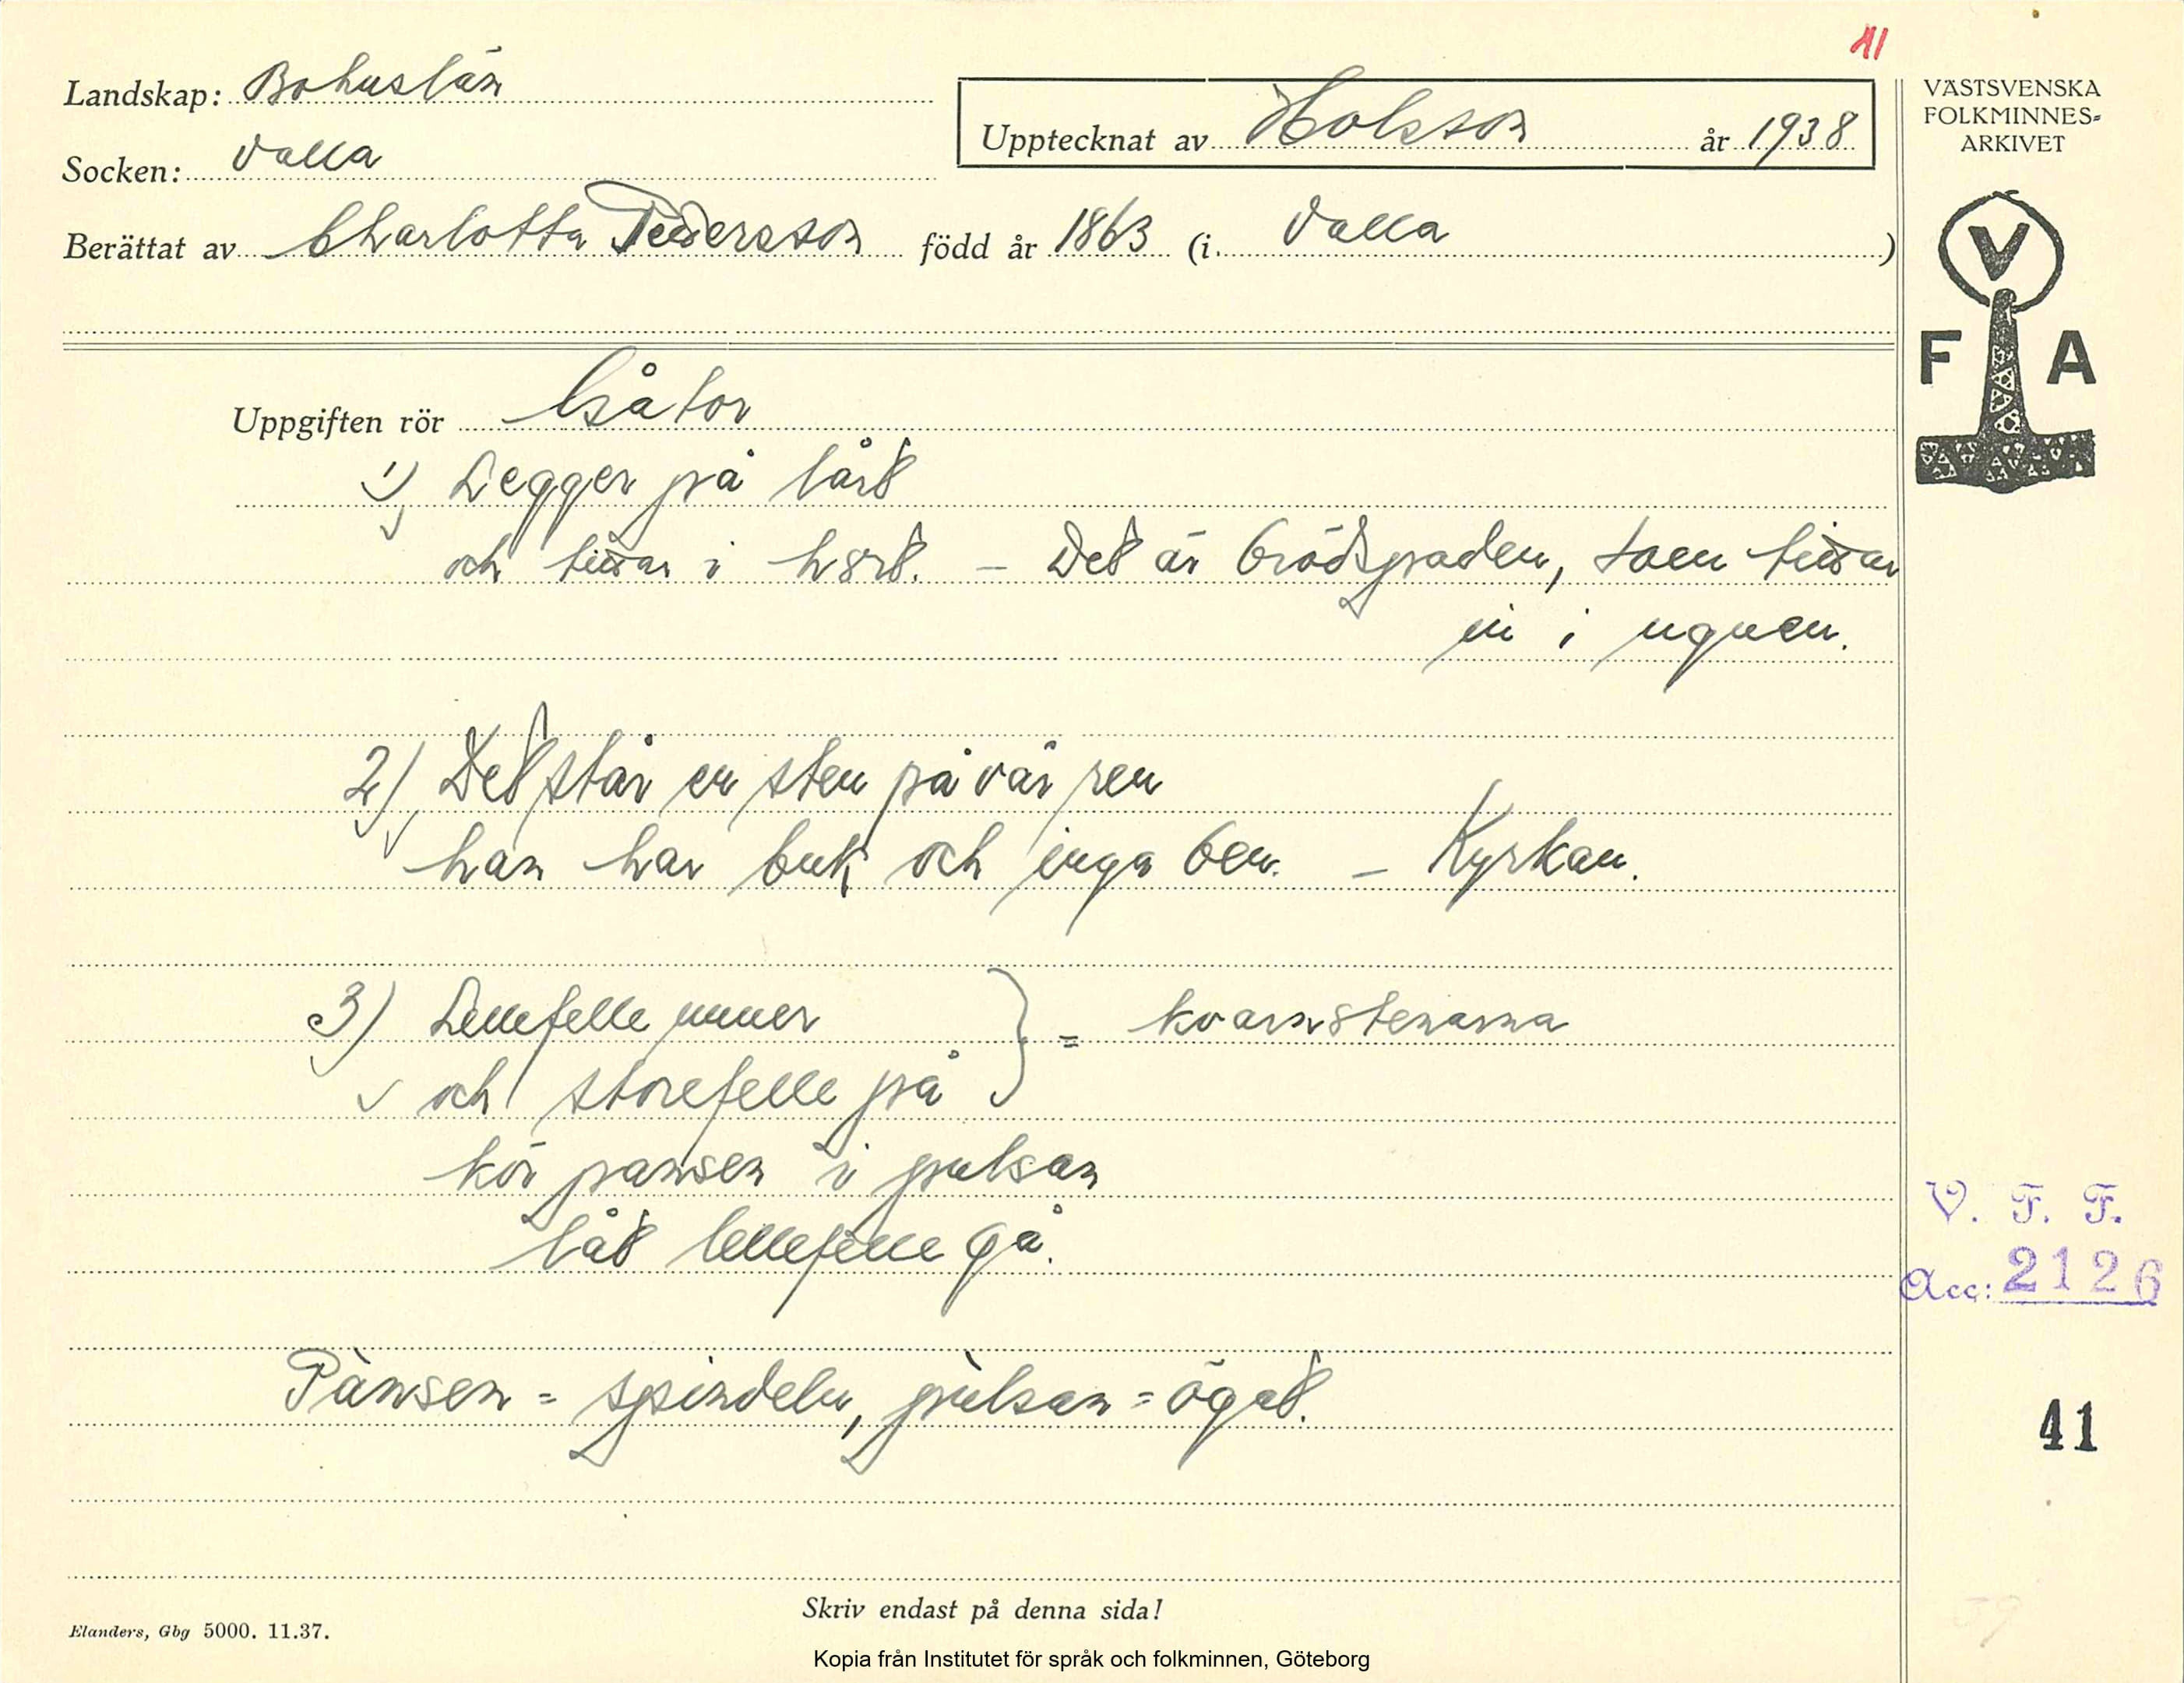 11
Landskap: Bohuslän
Upptecknat av Holsson år 1938
VÄSTSVENSKA
FOLKMINNES-
ARKIVET
Socken: Valla
Berättat av Charlotta Pedersson född år 1863 (i Valla)
V
F A
Uppgiften rör Gåtor
1) Legger på lårt
och tittar i hårt. – Det är brödspaden, som tittar
in i ugnen.
2) Det står en sten på vår ren
han har buk och inga ben. – Kyrkan.
3) Lellefelle unner } = kvarnstenarna
och storefelle på
kör pansen i pulsan
låt lellefelle gå.
V. F. F.
Acc: 2126
Pànsen = spindeln, pùlsan = ögat.
41
39
Skriv endast på denna sida!
Elanders, Gbg 5000. 11.37.
Kopia från Institutet för språk och folkminnen, Göteborg